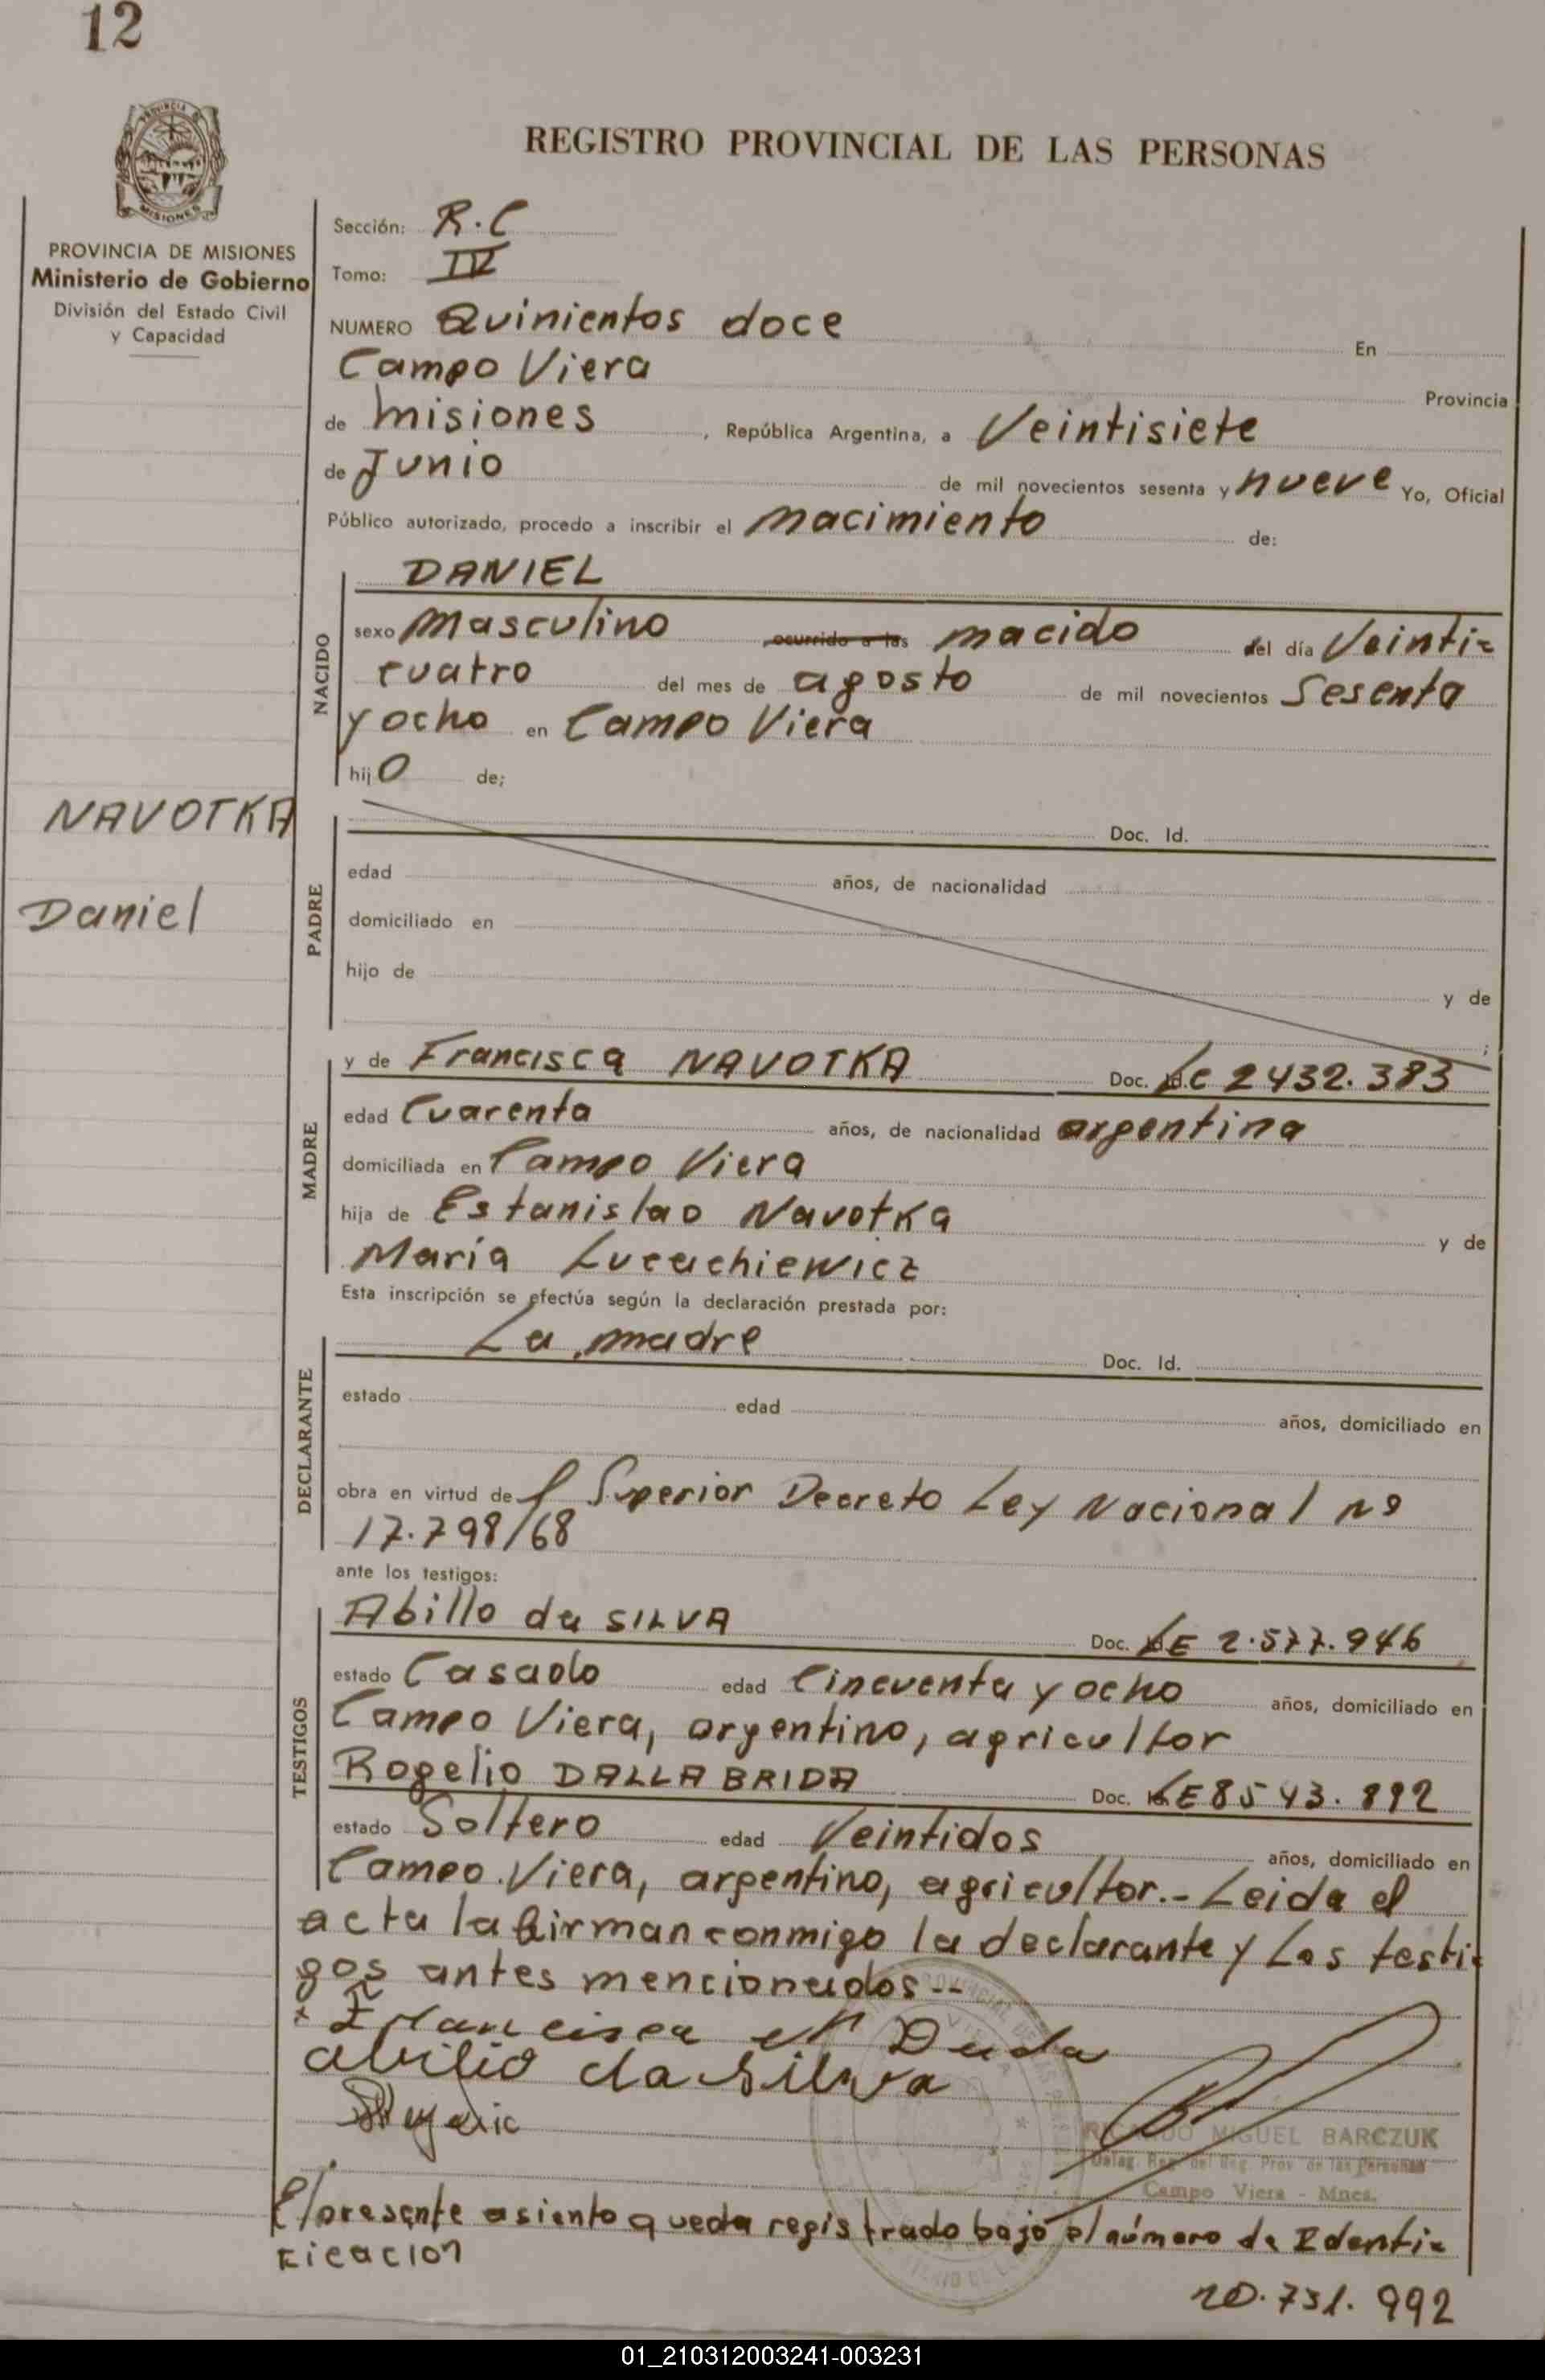 12
MISIONES
REGISTRO PROVINCIAL DE LAS PERSONAS
PROVINCIA DE MISIONES
Ministerio de Gobierno
División del Estado Civil
y Capacidad
Sección: R.C
Tomo: IV
NUMERO Quinientos doce En
Campo Viera Provincia
de misiones, República Argentina, a Veintisiete
de Junio de mil novecientos sesenta y nueve Yo, Oficial
Público autorizado, procedo a inscribir el nacimiento de:
NACIDO
DANIEL
sexo Masculino ocurrido a las nacido del día Veinti=
cuatro del mes de agosto de mil novecientos Sesenta
y ocho en Campo Viera
hijo de;
NAVOTKA
Daniel
PADRE
Doc. Id.
edad años, de nacionalidad
domiciliado en
hijo de y de
;
MADRE
y de Francisca NAVOTKA Doc. LC 2432.383
edad Cuarenta años, de nacionalidad argentina
domiciliada en Campo Viera
hija de Estanislao Navotka y de
María Lucachiewicz
Esta inscripción se efectúa según la declaración prestada por:
DECLARANTE
La madre Doc. Id.
estado edad años, domiciliado en
obra en virtud del Superior Decreto Ley Nacional nº
17.798/68
ante los testigos:
TESTIGOS
Abillo da SILVA Doc. LE 2.577.946
estado Casado edad Cincuenta y ocho años, domiciliado en
Campo Viera, argentino, agricultor
Rogelio DALLA BRIDA Doc. LE 8543.892
estado Soltero edad Veintidos años, domiciliado en
Campo Viera, argentino, agricultor.- Leida el
acta la firman conmigo la declarante y Los testi=
gos antes mencionados--
Francisca N Duda
abilio da Silva
RICARDO MIGUEL BARCZUK
Deleg. Reg. del Reg. Prov. de las Personas
Campo Viera - Mnes.
El presente asiento queda registrado bajo el número de Identi=
ficacion
20.731.992
01_210312003241-003231